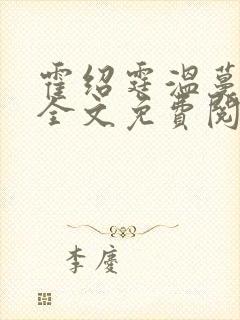 霍绍霆温蔓
全文免费阅
李庆